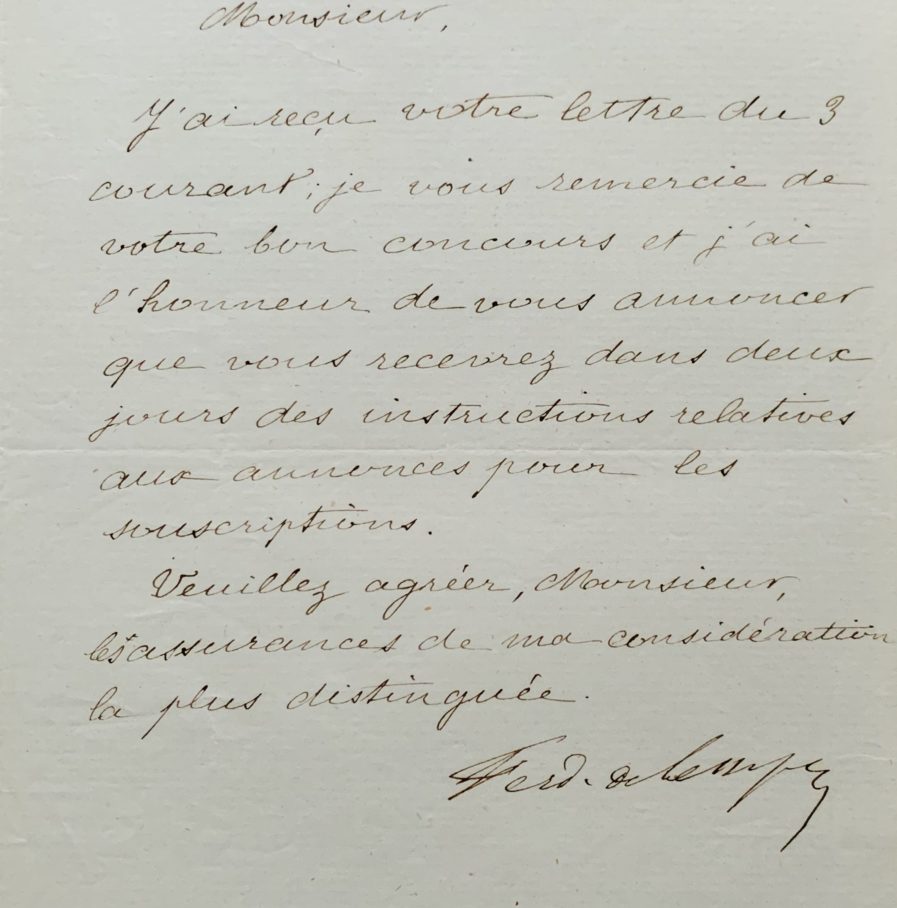 Monsieur,
J'ai reçu votre lettre du 3
courant; je vous remercie de
votre bon concours et j'ai
l'honneur de vous annoncer
que vous recevrez dans deux
jours des instructions relatives
aux annonces pour les
souscriptions.
Veuillez agréer, Monsieur,
les assurances de ma considération
la plus distinguée.
Ferd. de Lesseps